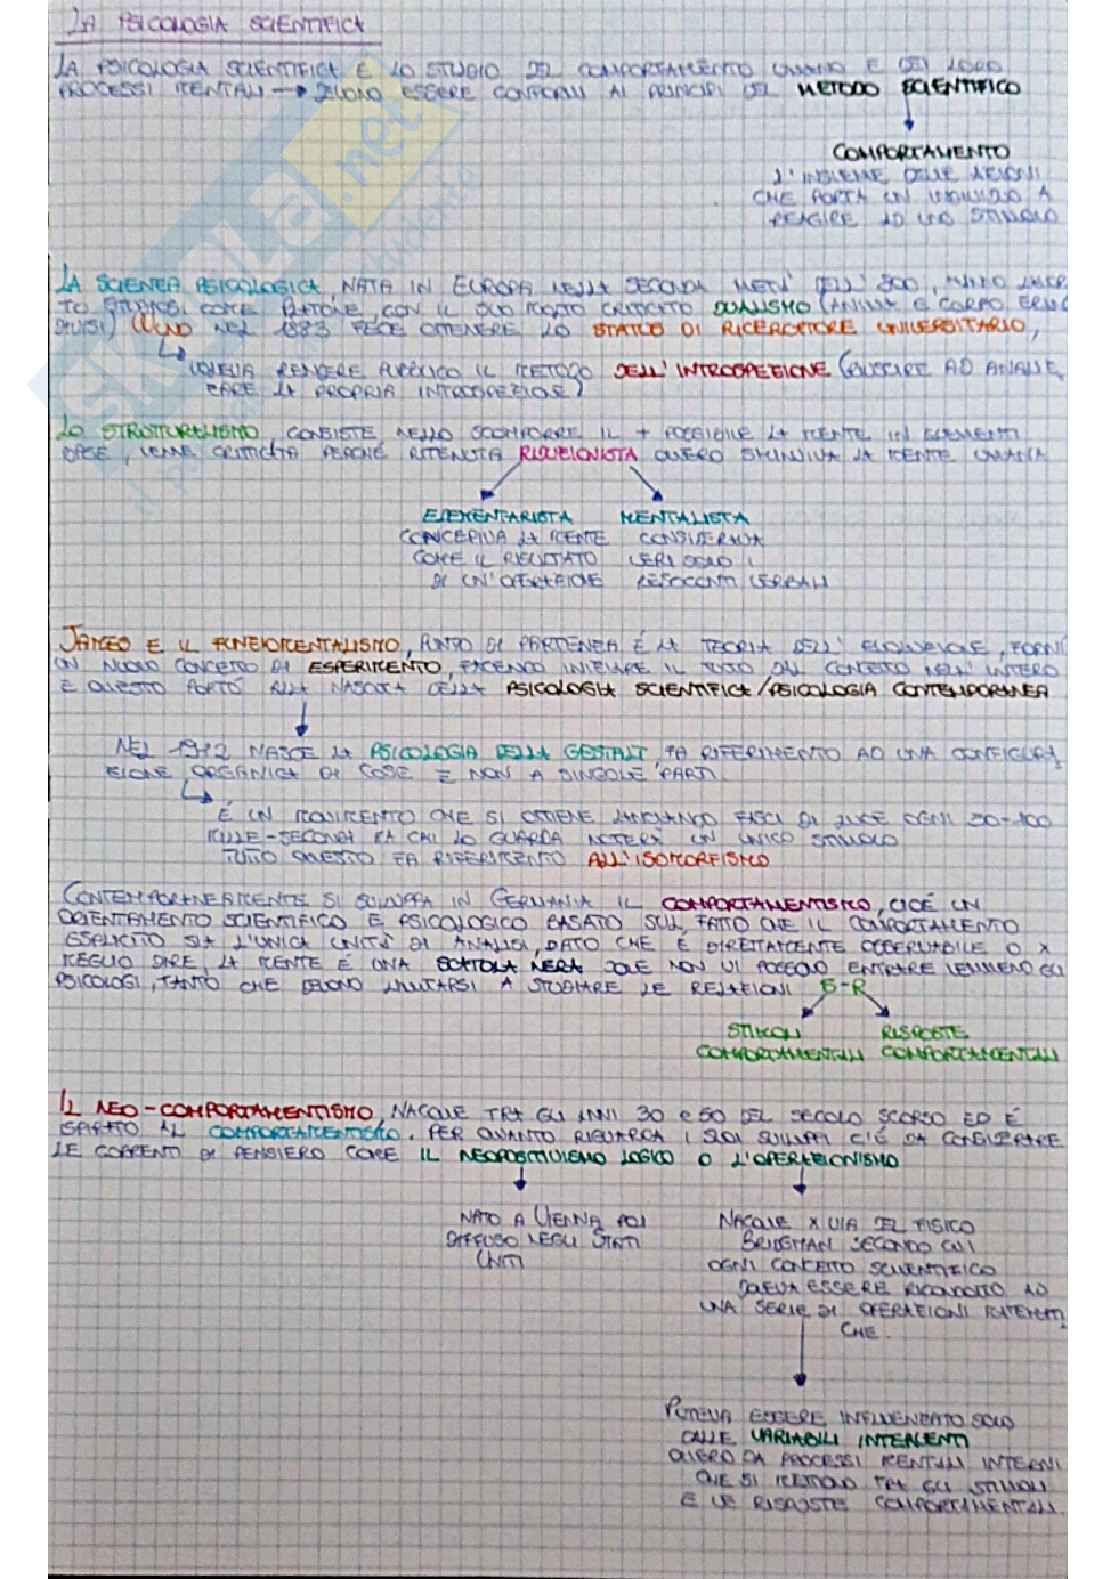 LA PSICOLOGIA SCIENTIFICA
LA PSICOLOGIA SCIENTIFICA È LO STUDIO DEL COMPORTAMENTO UMANO E DEI LORO
PROCESSI MENTALI → DEVONO ESSERE CONFORMI AI PRINCIPI DEL METODO SCIENTIFICO
COMPORTAMENTO
L'INSIEME DELLE AZIONI
CHE PORTA UN INDIVIDUO A
REAGIRE AD UNO STIMOLO
LA SCIENZA PSICOLOGICA, NATA IN EUROPA NELLA SECONDA METÀ DELL'800, HANNO
STUDIOSI COME PLATONE, CON IL SUO MOLTO CRITICATO DUALISMO (ANIMA E CORPO ERANO
DIVISI) NEL 1883 FECE OTTENERE LO STATUS DI RICERCATORE UNIVERSITARIO,
VOLEVA RENDERE PUBBLICO IL METODO DELL'INTROSPEZIONE (RIUSCIRE AD ANALIZ
ZARE LA PROPRIA INTROSPEZIONE)
LO STRUTTURALISMO, CONSISTE NELLO SCOMPORRE IL + POSSIBILE LA MENTE IN ELEMENTI
BASE, VENNE CRITICATA PERCHÉ RITENUTA RIDUZIONISTA OVVERO SMINUIVA LA MENTE UMANA
ELEMENTARISTA MENTALISTA
CONCEPIVA LA MENTE CONSIDERAVA
COME IL RISULTATO VERI SOLO I
DI UN'OPERAZIONE RESOCONTI VERBALI
JAMES E IL FUNZIOMENTALISMO, PUNTO DI PARTENZA È LA TEORIA DELL'EVOLUZIONE, FORNÌ
UN NUOVO CONCETTO DI ESPERIMENTO, FACENDO INIZIARE IL TUTTO DAL CONCETTO DELL'INTERO
E QUESTO PORTÒ ALLA NASCITA DELLA PSICOLOGIA SCIENTIFICA/PSICOLOGIA CONTEMPORANEA
NEL 1912 NASCE LA PSICOLOGIA DELLA GESTALT, FA RIFERIMENTO AD UNA CONFIGURA
ZIONE ORGANICA DI COSE E NON A SINGOLE PARTI
È UN MOVIMENTO CHE SI OTTIENE LANCIANDO FASCI DI LUCE OGNI 50-100
MILLE-SECONDI DA CUI LO GUARDA NOTERÀ UN UNICO STIMOLO
TUTTO QUESTO FA RIFERIMENTO ALL'ISOMORFISMO
CONTEMPORANEAMENTE SI SVILUPPA IN GERMANIA IL COMPORTAMENTISMO, CIOÈ UN
ORIENTAMENTO SCIENTIFICO E PSICOLOGICO BASATO SUL FATTO CHE IL COMPORTAMENTO
ESPLICITO SIA L'UNICA UNITÀ DI ANALISI, DATO CHE È DIRETTAMENTE OSSERVABILE O X
MEGLIO DIRE, LA MENTE È UNA SCATOLA NERA DOVE NON VI POSSONO ENTRARE NEMMENO GLI
PSICOLOGI, TANTO CHE DEVONO LIMITARSI A STUDIARE LE RELAZIONI S-R
STIMOLI RISPOSTE
COMPORTAMENTALI COMPORTAMENTALI
IL NEO-COMPORTAMENTISMO, NACQUE TRA GLI ANNI 30 e 50 DEL SECOLO SCORSO ED È
ISPIRATO AL COMPORTAMENTISMO. PER QUANTO RIGUARDA I SUOI SVILUPPI C'È DA CONSIDERARE
LE CORRENTI DI PENSIERO COME IL NEOPOSITIVISMO LOGICO O L'OPERAZIONISMO
NATO A VIENNA POI NACQUE X VIA DEL FISICO
DIFFUSO NEGLI STATI BRIDGMAN SECONDO CUI
UNITI OGNI CONCETTO SCIENTIFICO
DOVEVA ESSERE RICONDOTTO AD
UNA SERIE DI OPERAZIONI MATEMATI
CHE.
POTEVA ESSERE INFLUENZATO SOLO
DALLE VARIABILI INTERVENTI
OVVERO DA PROCESSI MENTALI INTERNI
CHE SI METTONO TRA GLI STIMOLI
E LE RISPOSTE COMPORTAMENTALI.